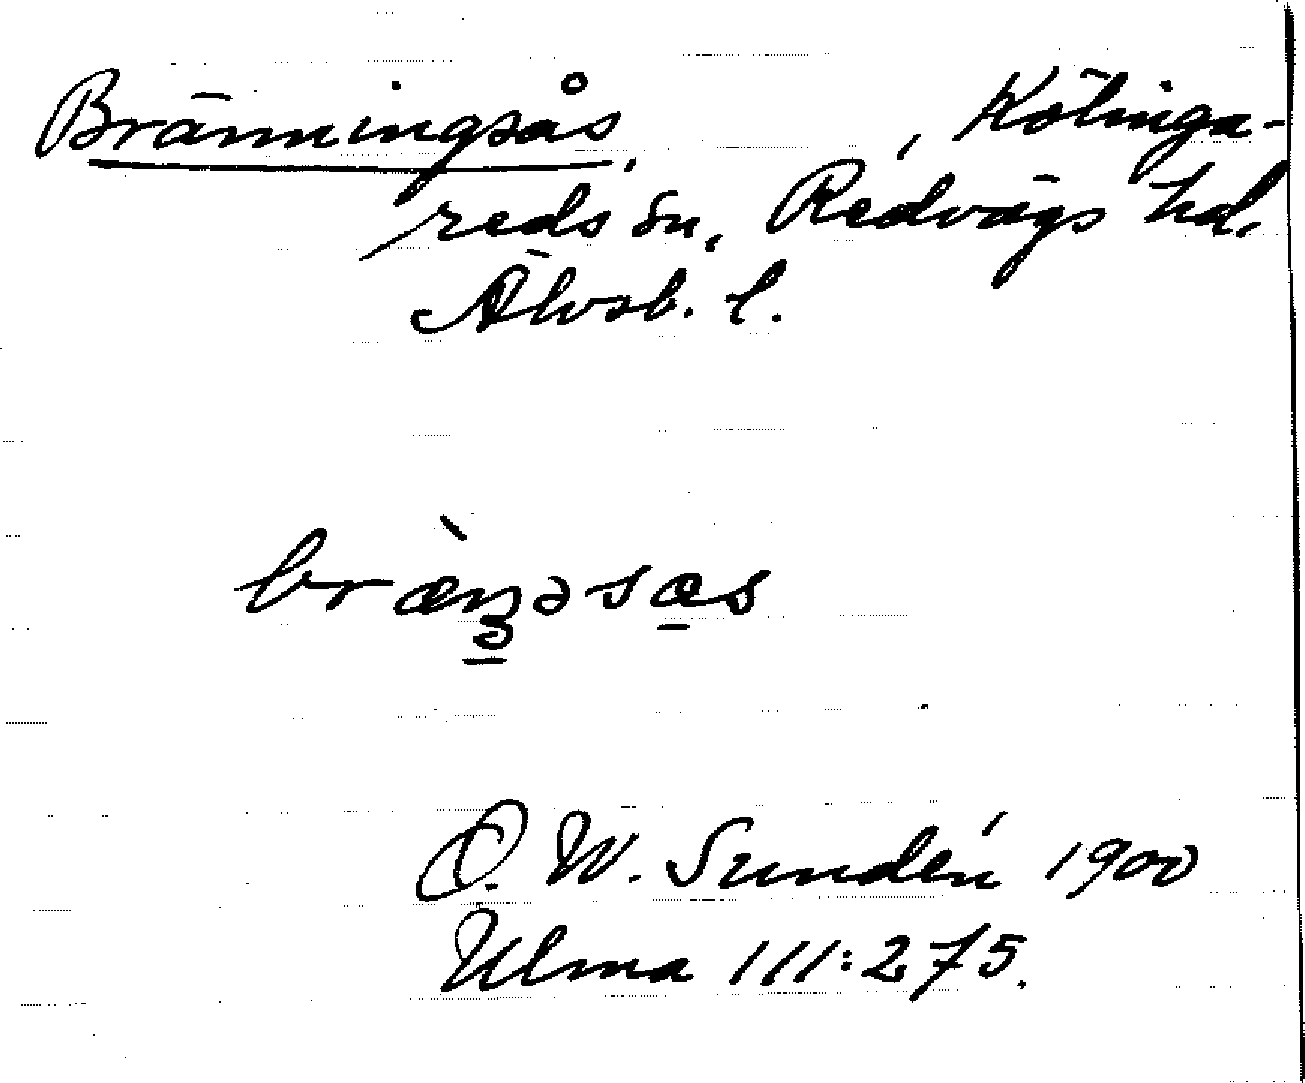 Bränningsås, , Kölinga-
reds sn, Redvägs hd.
Älvsb. l.
O. W. Sundén 1900
Ulma 111:275.